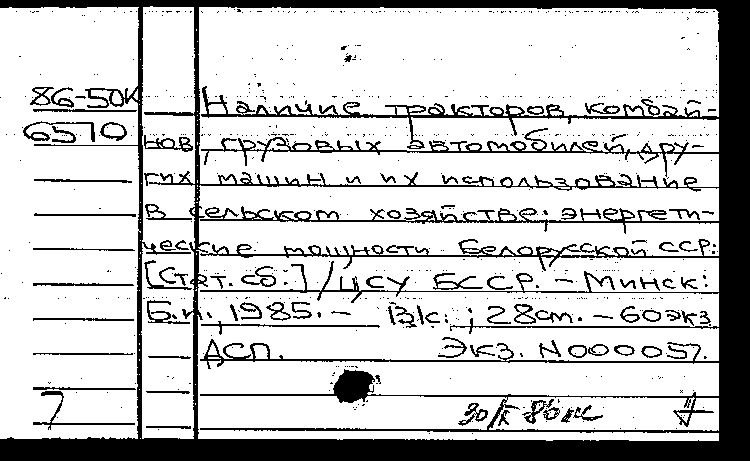 86-50К Наличие тракторов, комбай-
6570 нов, грузовых автомобилей, дру-
гих машин и их использование
в сельском хозяйстве; энергети-
ческие мощности Белорусской ССР:
[Стат. сб.] / ЦСУ БССР. - Минск:
Б.и., 1985. - В/с.; 28см. - 60экз
ДСП. Экз. N000057.
7 30/X 86